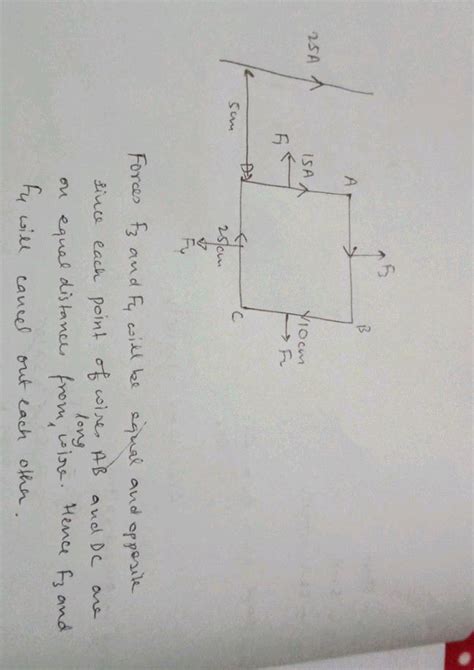 F3
A
B
25A
15A
10cm
F1
F2
D
C
5cm
25cm
F4
Forces F3 and F4 will be equal and opposite
since each point of wires AB and DC are
on equal distance from long wire. Hence F3 and
F4 will cancel out each other.